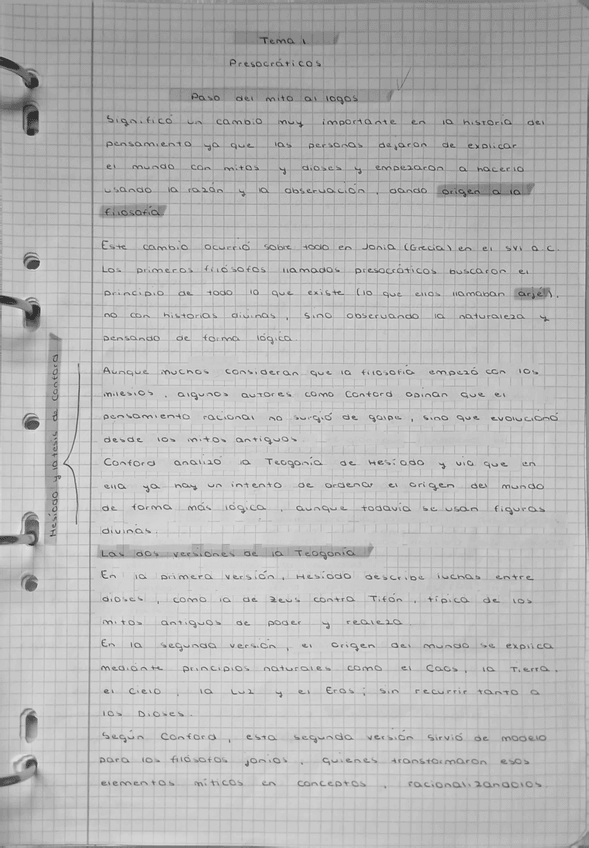 Tema 1
Presocráticos
Paso del mito al logos
Significó un cambio muy importante en la historia del
pensamiento ya que las personas dejaron de explicar
el mundo con mitos y dioses y empezaron a hacerlo
usando la razón y la observación, dando origen a la
filosofía
Este cambio ocurrió sobre todo en Jonia (Grecia) en el SVI a.C.
Los primeros filósofos llamados presocráticos buscaron el
principio de todo lo que existe (lo que ellos llamaban arjé),
no con historias divinas, sino observando la naturaleza y
pensando de forma lógica.
Hesiodo y la tesis de Conford
Aunque muchos consideran que la filosofía empezó con los
milesios, algunos autores como Conford opinan que el
pensamiento racional no surgió de golpe, sino que evolucionó
desde los mitos antiguos.
Conford analizó a Teogonía de Hesiodo y vio que en
ella ya hay un intento de ordenar el origen del mundo
de forma más lógica, aunque todavía se usan figuras
divinas.
Las dos versiones de la Teogonía
En la primera versión, Hesiodo describe luchas entre
dioses, como la de Zeus contra Tifón, típica de los
mitos antiguos de poder y realeza.
En la segunda versión, el origen del mundo se explica
mediante principios naturales como el Caos, la Tierra,
el Cielo, la Luz y el Eros; sin recurrir tanto a
los Dioses.
Según Conford, esta segunda versión sirvió de modelo
para los filósofos jonios, quienes transformaron esos
elementos míticos en conceptos, racionalizandolos.